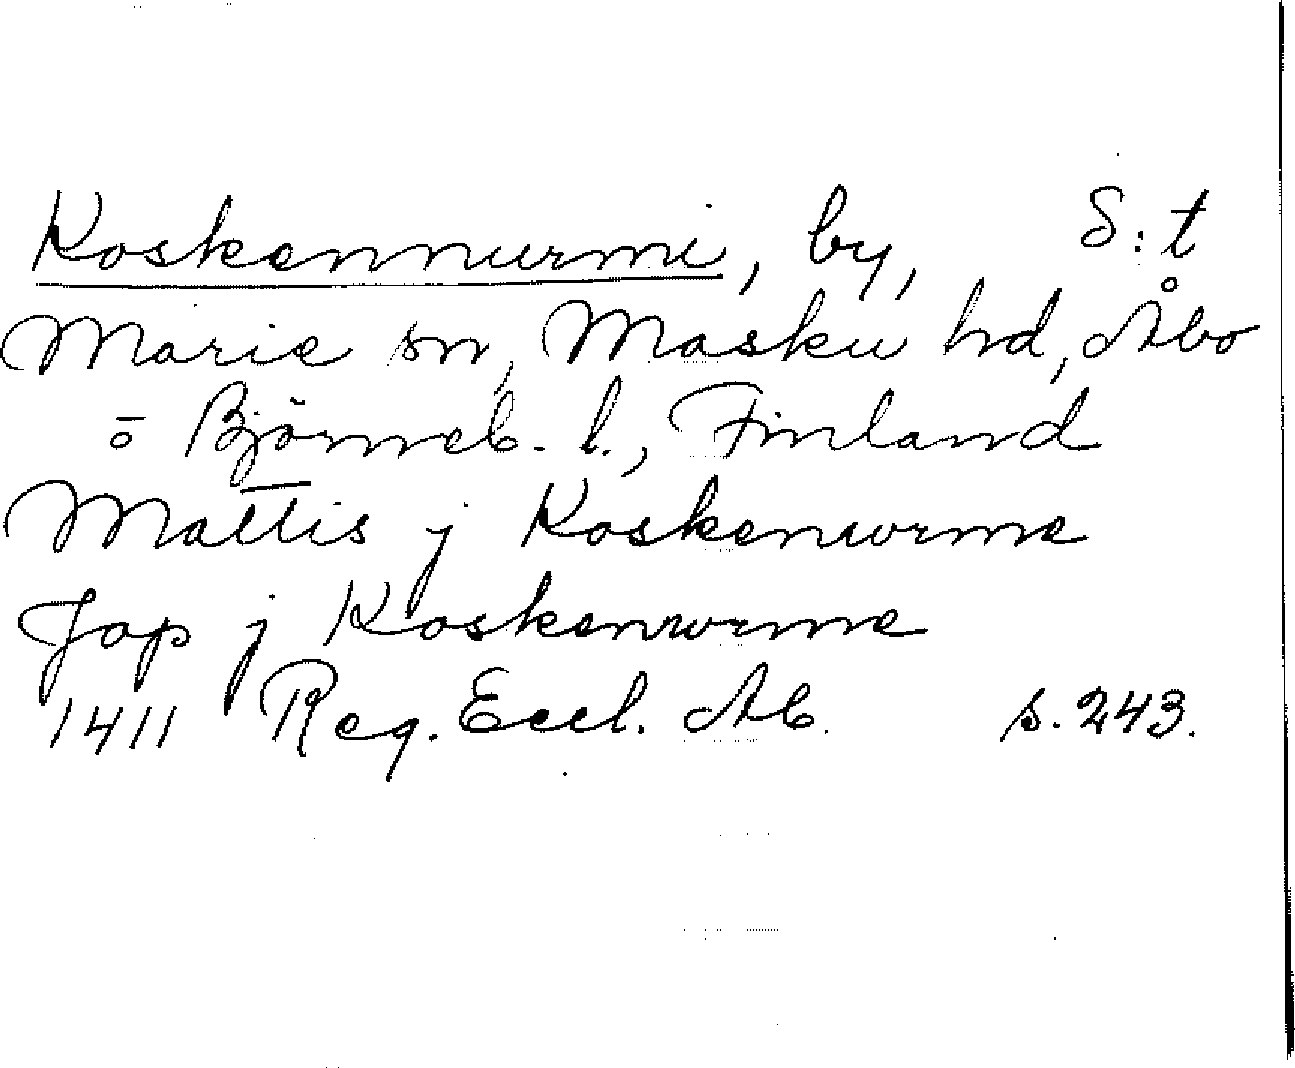 Koskennurmi, by, S:t
Marie sn, Masku hd, Åbo
o Björneb. l., Finland
Mattis j Koskenwrme
Jop j Koskenwrme
1411 Reg. Eccl. Ab. s. 243.